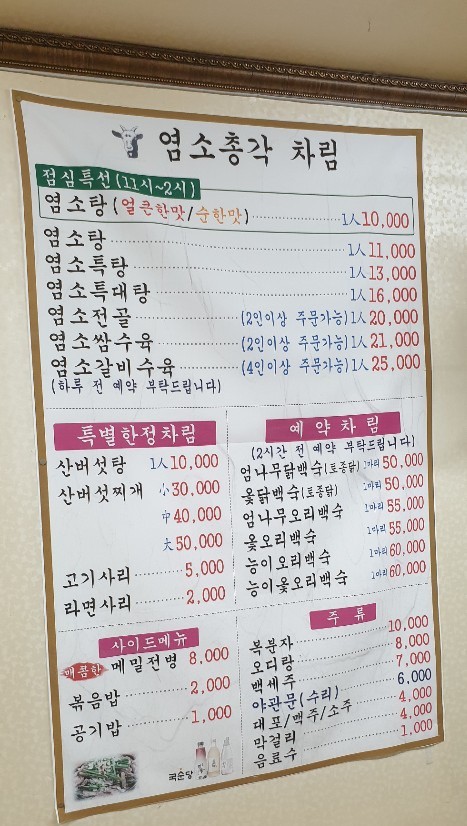 염소총각 차림
점심특선(11시~2시)
염소탕(얼큰한맛/순한맛) 1人 10,000
염소탕 1人 11,000
염소특탕 1人 13,000
염소특대탕 1人 16,000
염소전골 (2인이상 주문가능) 1人 20,000
염소쌈수육 (2인이상 주문가능) 1人 21,000
염소갈비수육 (4인이상 주문가능) 1人 25,000
(하루 전 예약 부탁드립니다)
특별한정차림
산버섯탕 1人 10,000
산버섯찌개 小 30,000
中 40,000
大 50,000
고기사리 5,000
라면사리 2,000
예약차림
(2시간 전 예약 부탁드립니다)
엄나무닭백숙(토종닭) 1마리 50,000
옻닭백숙(토종닭) 1마리 50,000
엄나무오리백숙 1마리 55,000
옻오리백숙 1마리 55,000
능이오리백숙 1마리 60,000
능이옻오리백숙 1마리 60,000
사이드메뉴
매콤한 메밀전병 8,000
볶음밥 2,000
공기밥 1,000
국순당
주류
복분자 10,000
오디랑 8,000
백세주 7,000
야관문(수리) 6,000
대포/맥주/소주 4,000
막걸리 4,000
음료수 1,000